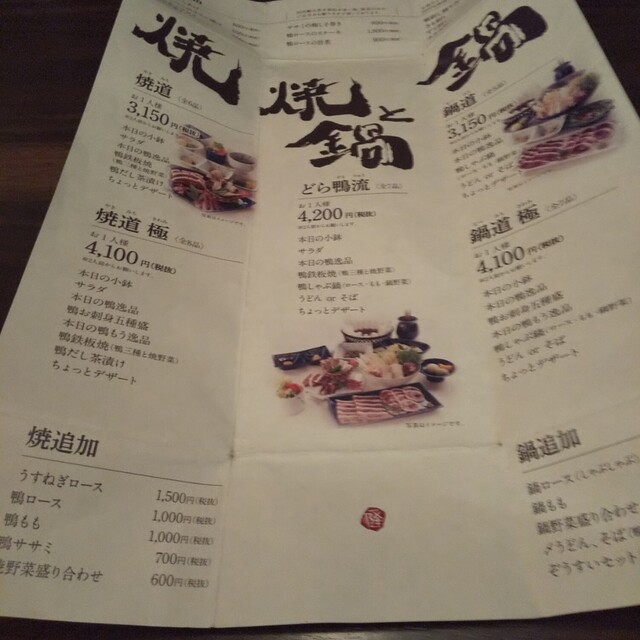 焼
焼道〈全6品〉
お1人様
3,150円(税抜)
※2人前からお願いします。
本日の小鉢
サラダ
本日の鴨逸品
鴨鉄板焼
(鴨三種と焼野菜)
鴨だし茶漬け
ちょっとデザート
写真はイメージです。
焼道 極〈全8品〉
お1人様
4,100円(税抜)
※2人前からお願いします。
本日の小鉢
サラダ
本日の鴨逸品
鴨お刺身五種盛
本日の鴨もう逸品
鴨鉄板焼(鴨三種と焼野菜)
鴨だし茶漬け
ちょっとデザート
焼追加
うすねぎロース 1,500円(税抜)
鴨ロース 1,000円(税抜)
鴨もも 1,000円(税抜)
鴨ササミ 700円(税抜)
焼野菜盛り合わせ 600円(税抜)
焼と
鍋
どら鴨流〈全7品〉
お1人様
4,200円(税抜)
※2人前からお願いします。
本日の小鉢
サラダ
本日の鴨逸品
鴨鉄板焼(鴨三種と焼野菜)
鴨しゃぶ鍋(ロース・もも・鍋野菜)
うどん or そば
ちょっとデザート
写真はイメージです。
鍋
鍋道
お1人様
3,150円(税抜)
※2人前からお願いします。
本日の小鉢
サラダ
本日の鴨逸品
鴨しゃぶ鍋
うどん or そば
ちょっとデザート
写真はイメージです。
鍋道 極〈全7品〉
お1人様
4,100円(税抜)
※2人前からお願いします。
本日の小鉢
本日の鴨逸品
鴨お刺身五種盛
本日の鴨もう逸品
鴨しゃぶ鍋(ロース・もも・鍋野菜)
うどん or そば
ちょっとデザート
鍋追加
鍋ロース(しゃぶしゃぶ
鍋もも
鍋野菜盛り合わせ
〆うどん、そば
ぞうすいセット